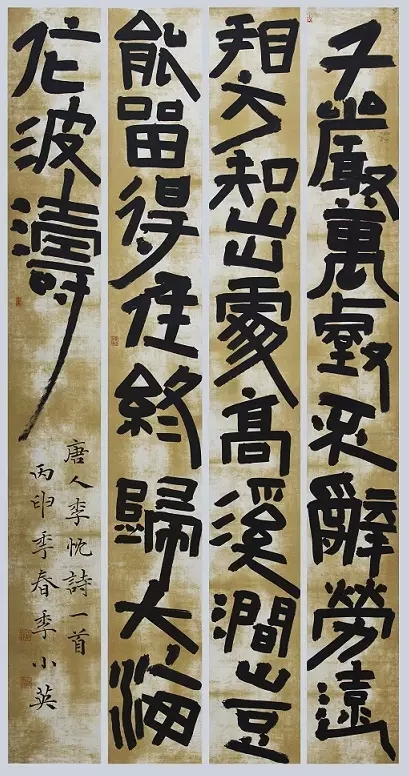 千巖萬壑不辭勞遠
看方知出處高溪澗豈
能留得住終歸大海
作波濤
唐人李忱詩一首
丙申季春季小英